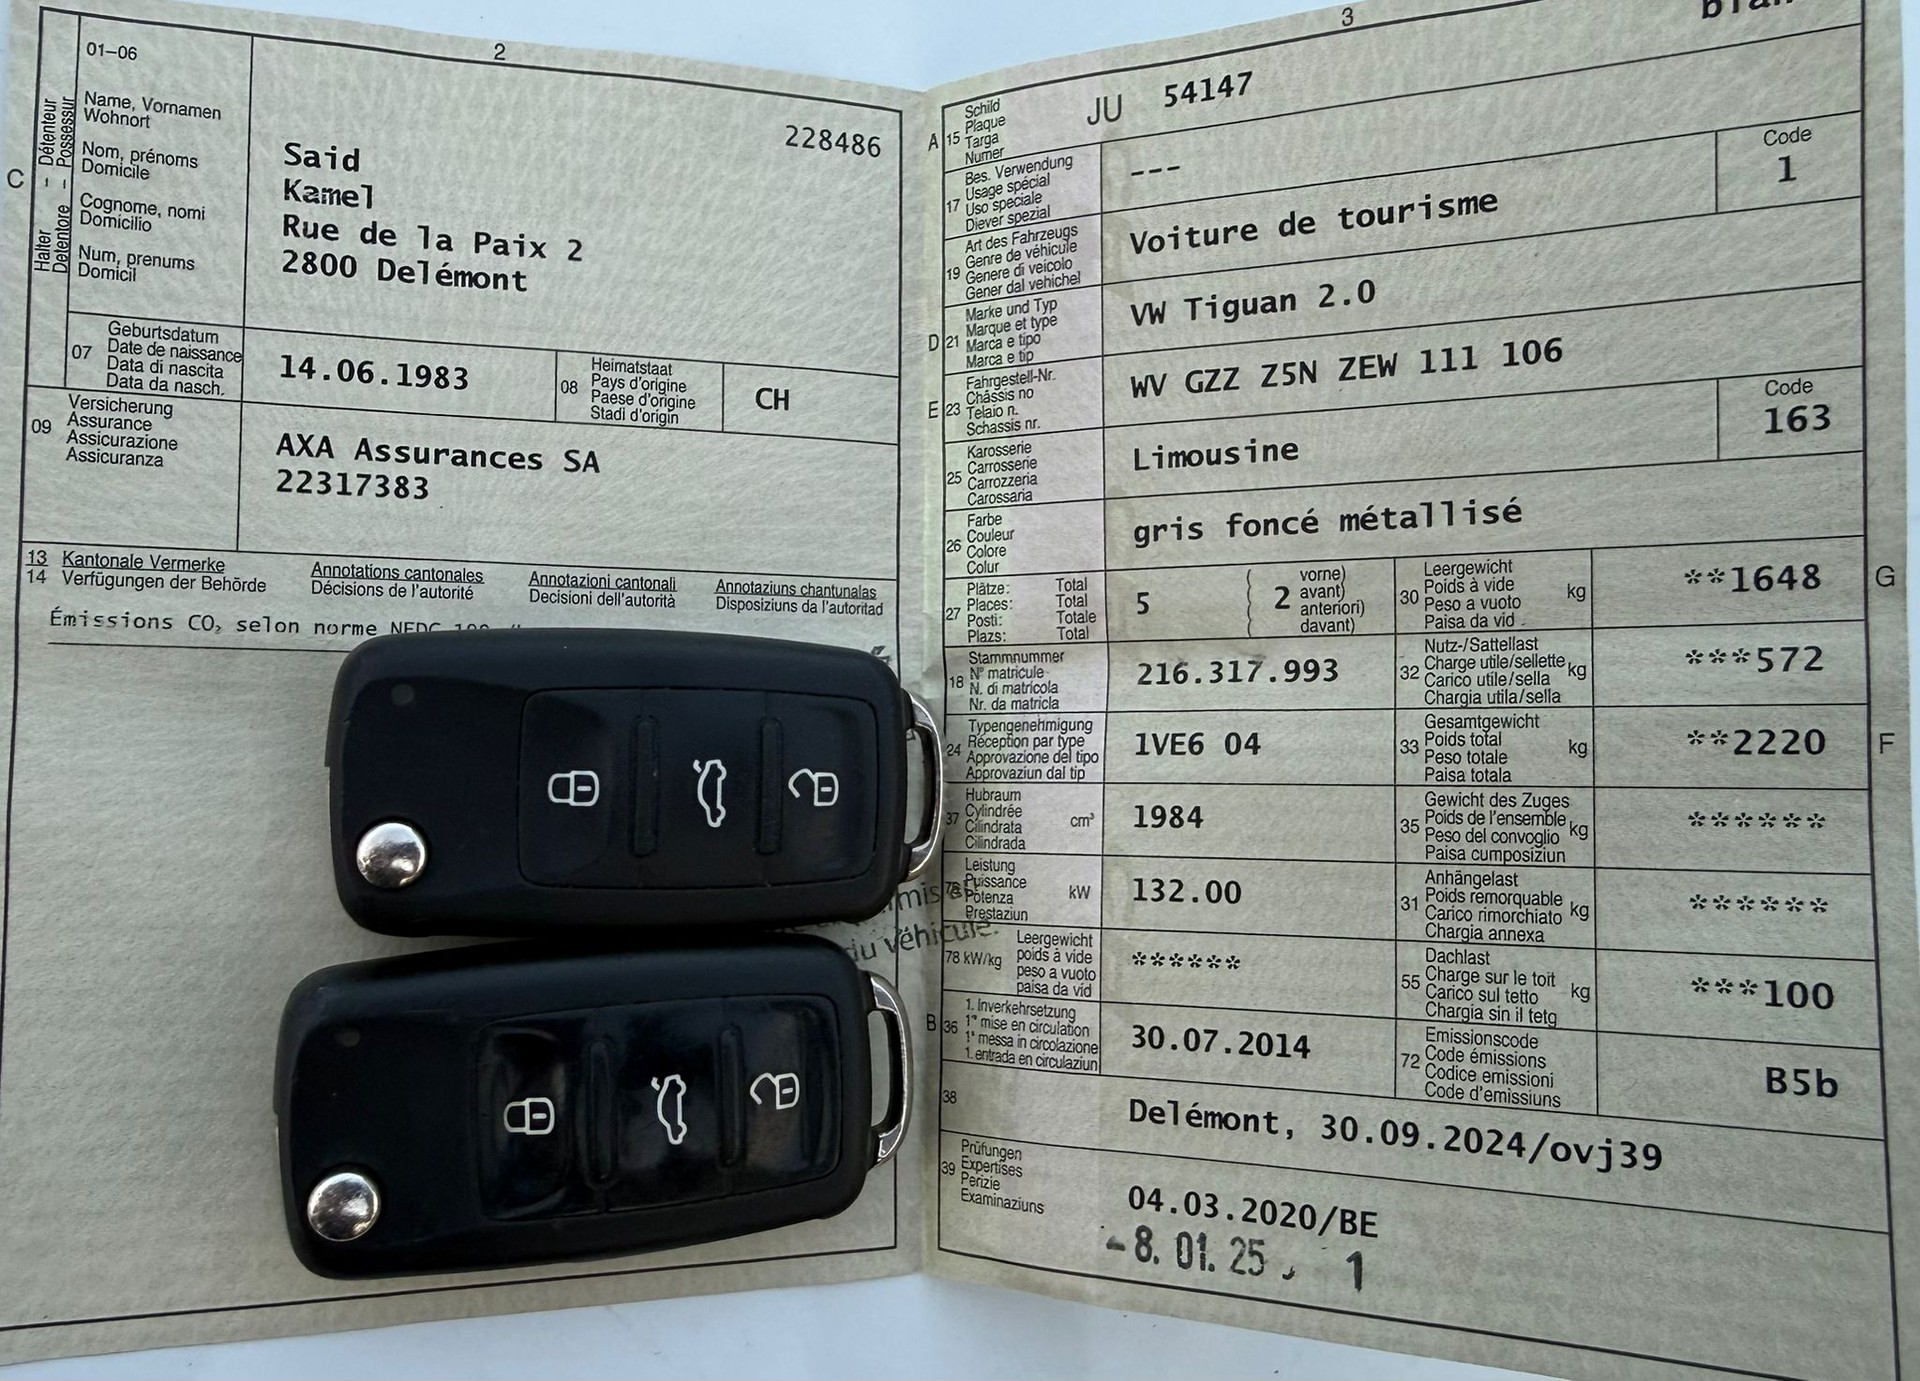 2
01–06
Name, Vornamen
Wohnort
Nom, prénoms
Domicile
Cognome, nomi
Domicilio
Num, prenums
Domicil
C
Halter – Détenteur
Detentore – Possessur
228486
Said
Kamel
Rue de la Paix 2
2800 Delémont
07
Geburtsdatum
Date de naissance
Data di nascita
Data da nasch.
14.06.1983
08
Heimatstaat
Pays d'origine
Paese d'origine
Stadi d'origin
CH
09
Versicherung
Assurance
Assicurazione
Assicuranza
AXA Assurances SA
22317383
13 Kantonale Vermerke Annotations cantonales Annotazioni cantonali Annotaziuns chantunalas
14 Verfügungen der Behörde Décisions de l'autorité Decisioni dell'autorità Disposiziuns da l'autoritad
Émissions CO₂ selon norme NEDC
du véhicule.
3
A
15
Schild
Plaque
Targa
Numer
JU 54147
17
Bes. Verwendung
Usage spécial
Uso speciale
Diever spezial
---
19
Art des Fahrzeugs
Genre de véhicule
Genere di veicolo
Gener dal vehichel
Voiture de tourisme
Code
1
D
21
Marke und Typ
Marque et type
Marca e tipo
Marca e tip
VW Tiguan 2.0
E
23
Fahrgestell-Nr.
Châssis no
Telaio n.
Schassis nr.
WV GZZ Z5N ZEW 111 106
25
Karosserie
Carrosserie
Carrozzeria
Carossaria
Limousine
Code
163
26
Farbe
Couleur
Colore
Colur
gris foncé métallisé
27
Plätze: Total
Places: Total
Posti: Totale
Plazs: Total
5
2
vorne)
avant)
anteriori)
davant)
30
Leergewicht
Poids à vide
Peso a vuoto
Paisa da vid
kg
**1648
G
18
Stammnummer
N° matricule
N. di matricola
Nr. da matricla
216.317.993
32
Nutz-/Sattellast
Charge utile/sellette
Carico utile/sella
Chargia utila/sella
kg
***572
24
Typengenehmigung
Réception par type
Approvazione del tipo
Approvaziun dal tip
1VE6 04
33
Gesamtgewicht
Poids total
Peso totale
Paisa totala
kg
**2220
F
37
Hubraum
Cylindrée
Cilindrata
Cilindrada
cm³
1984
35
Gewicht des Zuges
Poids de l'ensemble
Peso del convoglio
Paisa cumposiziun
kg
******
Leistung
Puissance
Potenza
Prestaziun
kW
132.00
31
Anhängelast
Poids remorquable
Carico rimorchiato
Chargia annexa
kg
******
78 kW/kg
Leergewicht
poids à vide
peso a vuoto
paisa da vid
******
55
Dachlast
Charge sur le toit
Carico sul tetto
Chargia sin il tetg
kg
***100
B
36
1. Inverkehrsetzung
1re mise en circulation
1a messa in circolazione
1. entrada en circulaziun
30.07.2014
72
Emissionscode
Code émissions
Codice emissioni
Code d'emissiuns
B5b
38
Delémont, 30.09.2024/ovj39
39
Prüfungen
Expertises
Perizie
Examinaziuns
04.03.2020/BE
-8. 01. 25 1